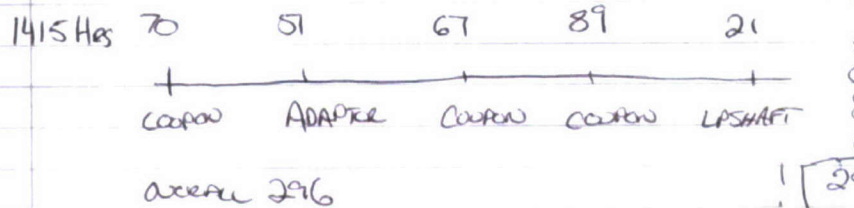 1415 Hrs 70 51 67 89 21
COUPON ADAPTER COUPON COUPON LPSHAFT
OVERALL 296